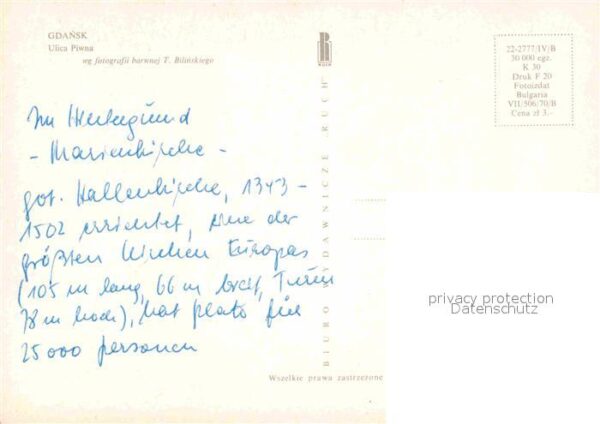 GDAŃSK
Ulica Piwna
wg fotografii barwnej T. Bilińskiego
Im Hintergrund
- Marienkirche -
got. Hallenkirche, 1343 -
1502 errichtet, eine der
größten Kirchen Europas
(105 m lang, 66 m breit, Turm
78 m hoch), hat platz für
25 000 personen
BIURO WYDAWNICZE RUCH
Wszelkie prawa zastrzeżone
22-2777/IV/B
30 000 egz.
K 30
Druk F 20
Fotoizdat
Bulgaria
VII/506/70/B
Cena zł 3,—
privacy protection
Datenschutz